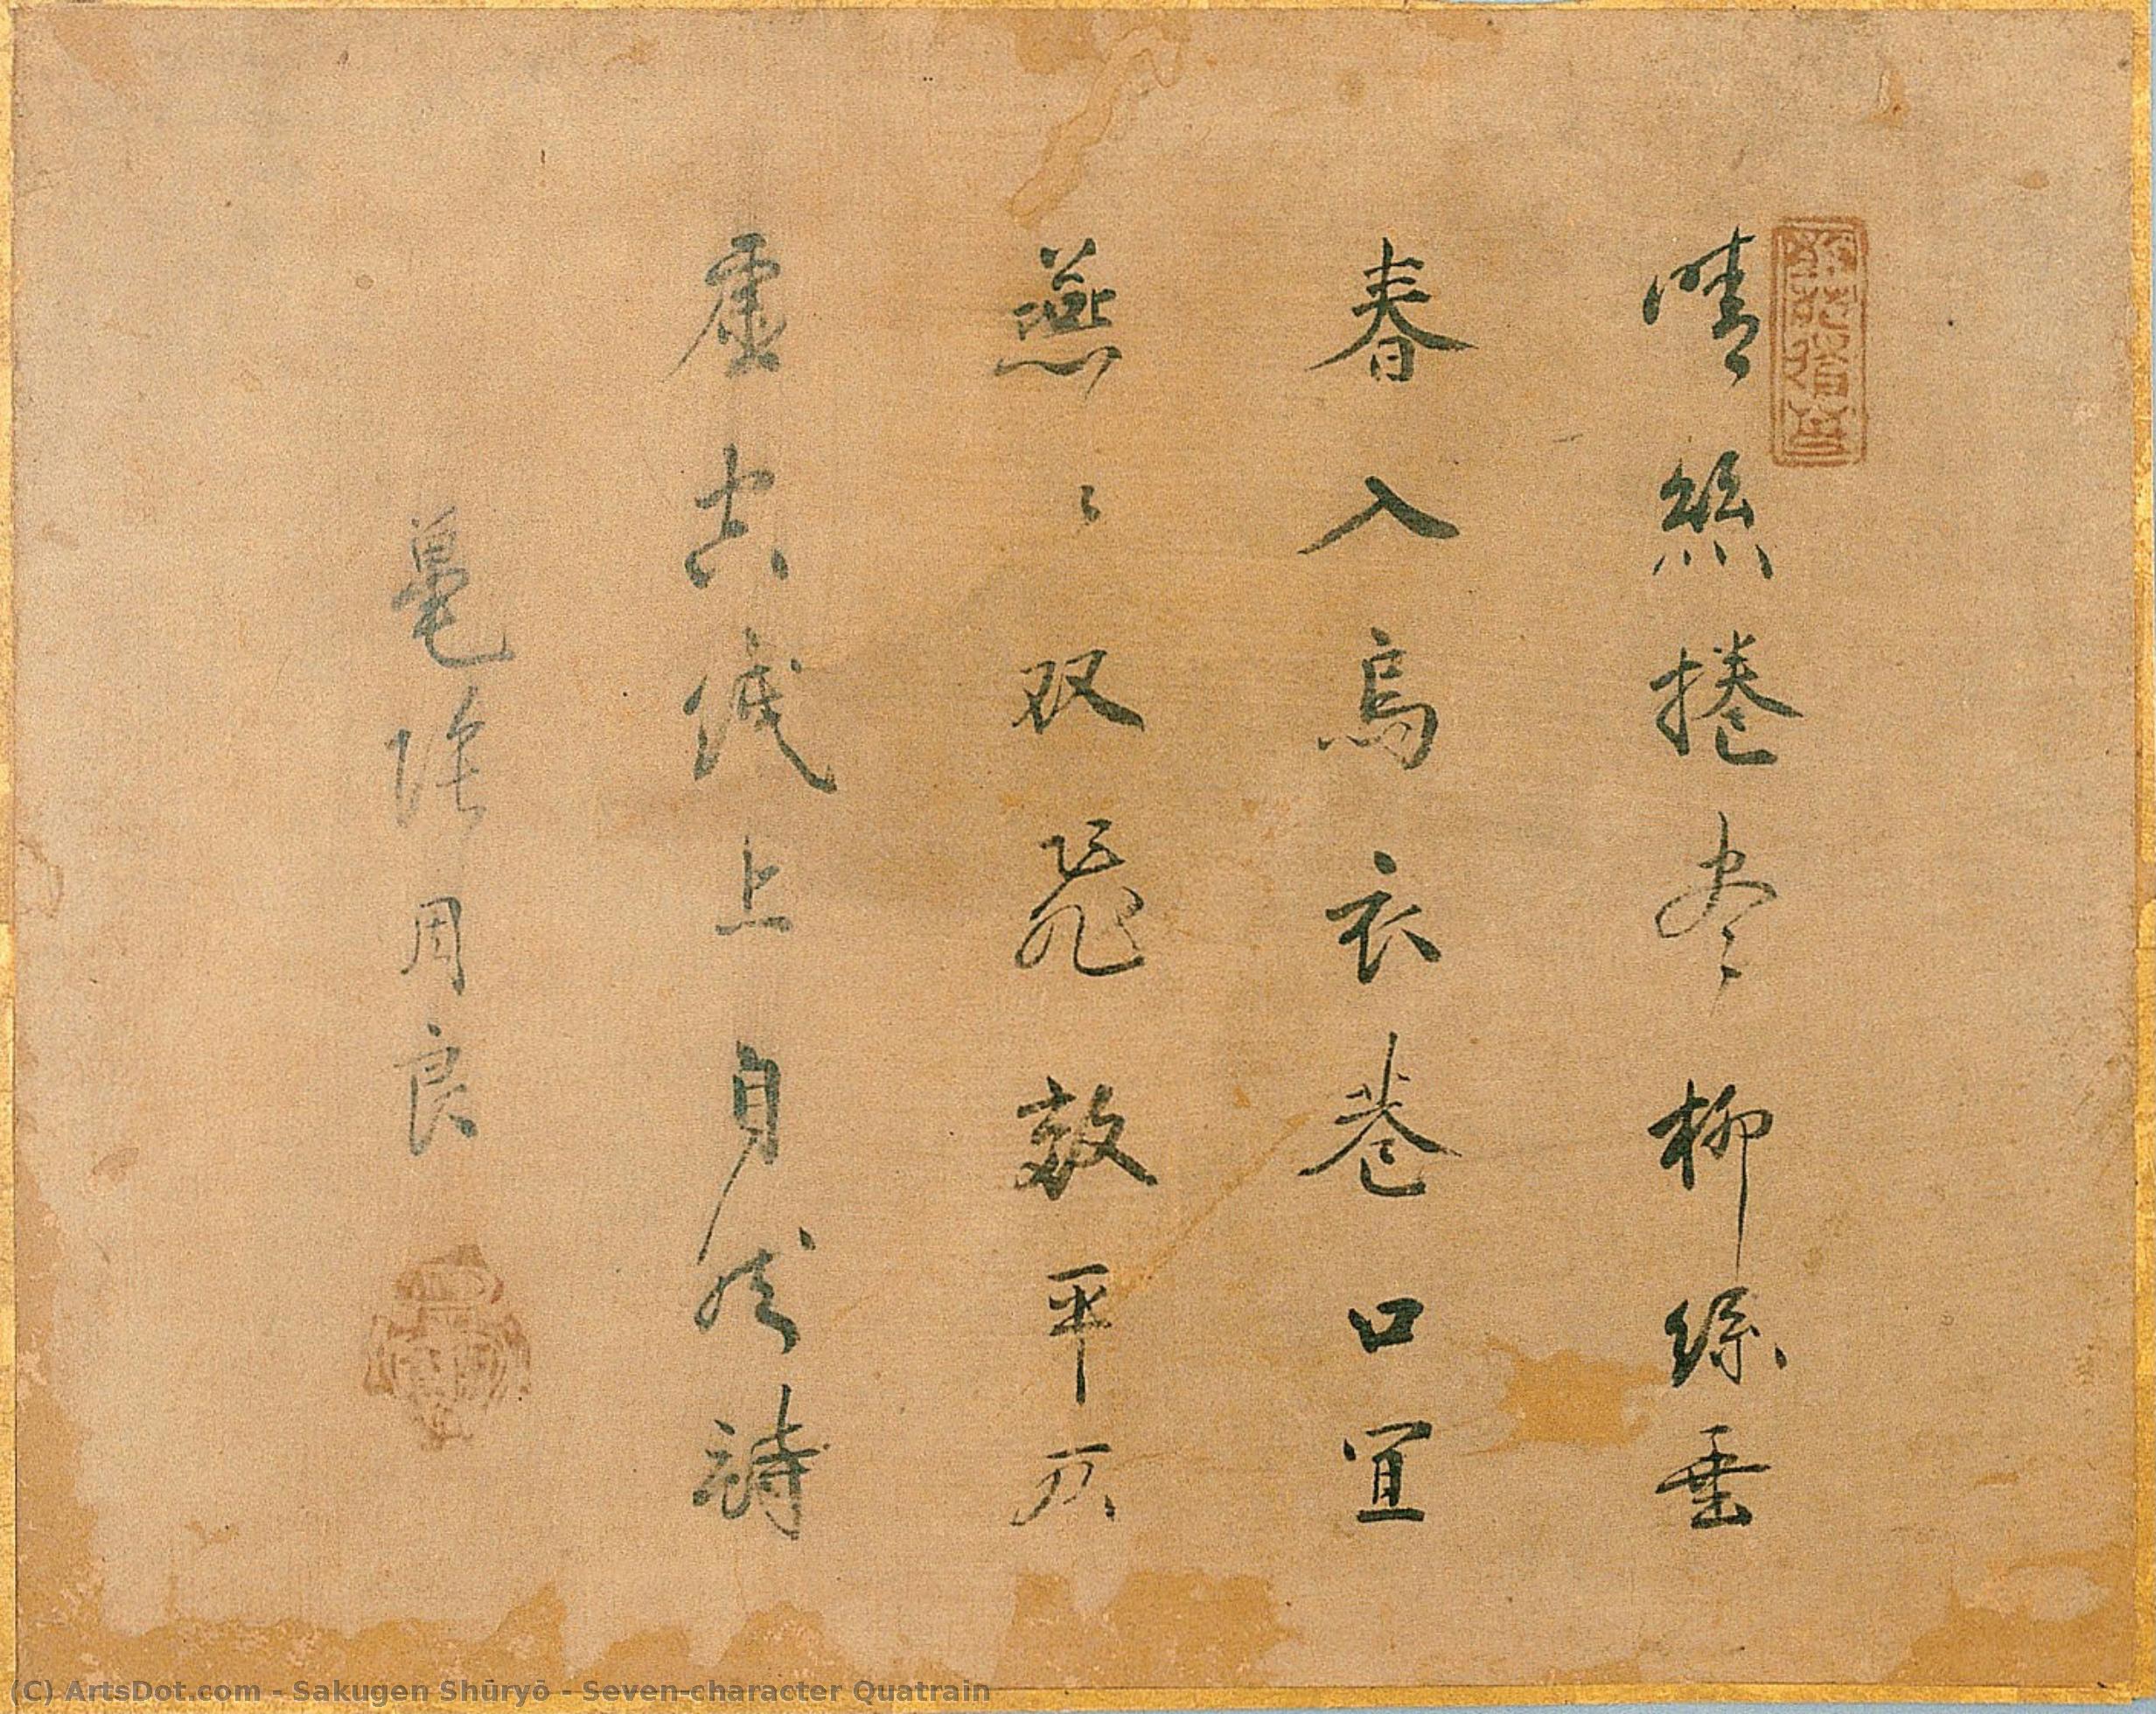 晴絲捲尽柳絲垂
春入烏衣巷口宜
燕々双飛敲平仄
虚空紙上自成詩
龜陰周良
(C) ArtsDot.com - Sakugen Shūryō - Seven-character Quatrain